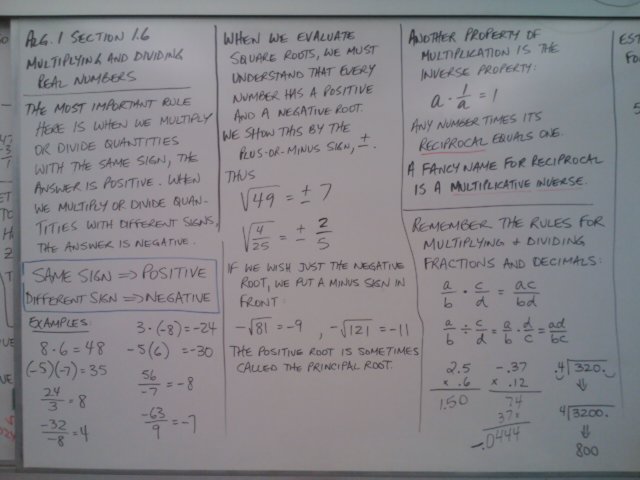 ALG. 1 SECTION 1.6
MULTIPLYING AND DIVIDING
REAL NUMBERS
THE MOST IMPORTANT RULE
HERE IS WHEN WE MULTIPLY
OR DIVIDE QUANTITIES
WITH THE SAME SIGN, THE
ANSWER IS POSITIVE. WHEN
WE MULTIPLY OR DIVIDE QUAN-
TITIES WITH DIFFERENT SIGNS,
THE ANSWER IS NEGATIVE.
SAME SIGN ⇒ POSITIVE
DIFFERENT SIGN ⇒ NEGATIVE
EXAMPLES:
8·6 = 48
(-5)(-7) = 35
24/3 = 8
-32/-8 = 4
3·(-8) = -24
-5(6) = -30
56/-7 = -8
-63/9 = -7
WHEN WE EVALUATE
SQUARE ROOTS, WE MUST
UNDERSTAND THAT EVERY
NUMBER HAS A POSITIVE
AND A NEGATIVE ROOT.
WE SHOW THIS BY THE
PLUS-OR-MINUS SIGN, ±.
THUS
√49 = ± 7
√4/25 = ± 2/5
IF WE WISH JUST THE NEGATIVE
ROOT, WE PUT A MINUS SIGN IN
FRONT:
-√81 = -9 , -√121 = -11
THE POSITIVE ROOT IS SOMETIMES
CALLED THE PRINCIPAL ROOT.
ANOTHER PROPERTY OF
MULTIPLICATION IS THE
INVERSE PROPERTY:
a · 1/a = 1
ANY NUMBER TIMES ITS
RECIPROCAL EQUALS ONE.
A FANCY NAME FOR RECIPROCAL
IS A MULTIPLICATIVE INVERSE.
REMEMBER THE RULES FOR
MULTIPLYING + DIVIDING
FRACTIONS AND DECIMALS:
a/b · c/d = ac/bd
a/b ÷ c/d = a/b · d/c = ad/bc
2.5
× .6
1.50
-.37
× .12
74
37×
-.0444
.4)320.
⇓
4)3200.
⇓
800
EST
FO